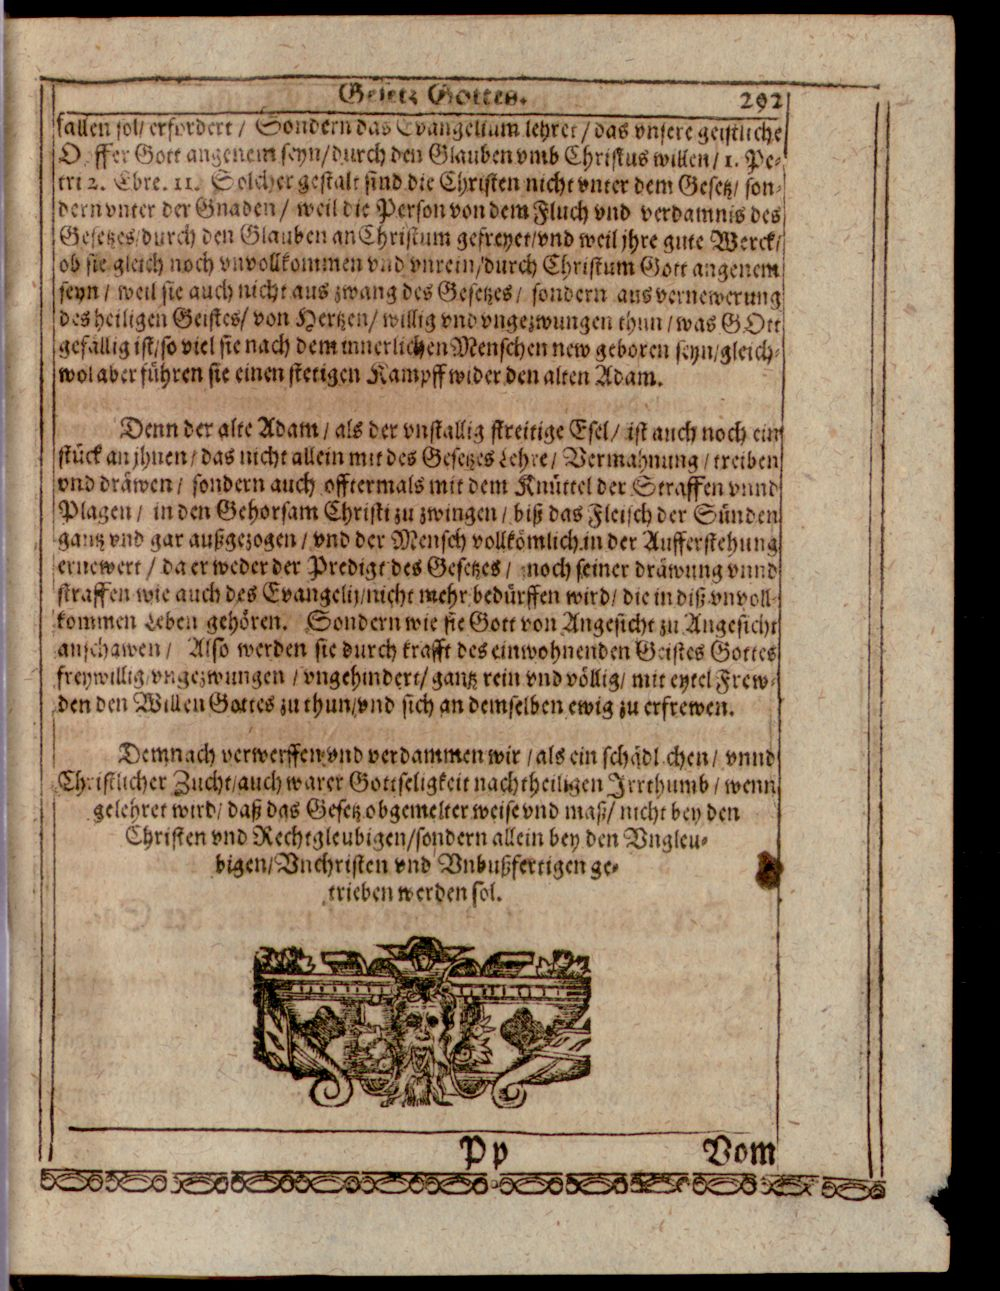 Gesetz Gottes. 292
fallen sol/ erfordert / Sondern das Evangelium lehret / das vnsere geistliche
O ffer Gott angenem seyn/durch den Glauben vmb Christus willen / 1. Pe-
tri 2. Ebre. 11. Solcher gestalt sind die Christen nicht vnter dem Gesetz/ son-
dern vnter der Gnaden / weil die Person von dem Fluch vnd verdamnis des
Gesetzes/durch den Glauben an Christum gefreyet/vnd weil jhre gute Werck/
ob sie gleich noch vnvollkommen vnd vnrein/durch Christum Gott angenem
seyn / weil sie auch nicht aus zwang des Gesetzes / sondern aus vernewerung
des heiligen Geistes/ von Hertzen/ willig vnd vngezwungen thun / was GOtt
gefällig ist/so viel sie nach dem innerlichen Menschen new geboren seyn/gleich-
wol aber führen sie einen stetigen Kampff wider den alten Adam.
Denn der alte Adam / als der vnstallig streitige Esel / ist auch noch ein
stück an jhnen / das nicht allein mit des Gesetzes Lehre / Vermahnung / treiben
vnd dräwen / sondern auch offtermals mit dem Knüttel der Straffen vnnd
Plagen / in den Gehorsam Christi zu zwingen / biß das Fleisch der Sünden
gantz vnd gar außgezogen / vnd der Mensch vollkömlich in der Aufferstehung
ernewert / da er weder der Predigt des Gesetzes / noch seiner dräwung vnnd
straffen wie auch des Evangelij/nicht mehr bedürffen wird/ die in diß vnvoll-
kommen Leben gehören. Sondern wie sie Gott von Angesicht zu Angesicht
anschawen / Also werden sie durch krafft des einwohnenden Geistes Gottes
freywillig/vngezwungen / vngehindert/ gantz rein vnd völlig/ mit eytel Frew-
den den Willen Gottes zu thun/vnd sich an demselben ewig zu erfrewen.
Demnach verwerffen vnd verdammen wir / als ein schädl chen / vnnd
Christlicher Zucht/auch warer Gottseligkeit nachtheiligen Jrrthumb / wenn
gelehret wird/ daß das Gesetz obgemelter weise vnd maß/ nicht bey den
Christen vnd Rechtgleubigen/sondern allein bey den Vngleu-
bigen/Vnchristen vnd Vnbußfertigen ge-
trieben werden sol.
Pp Vom